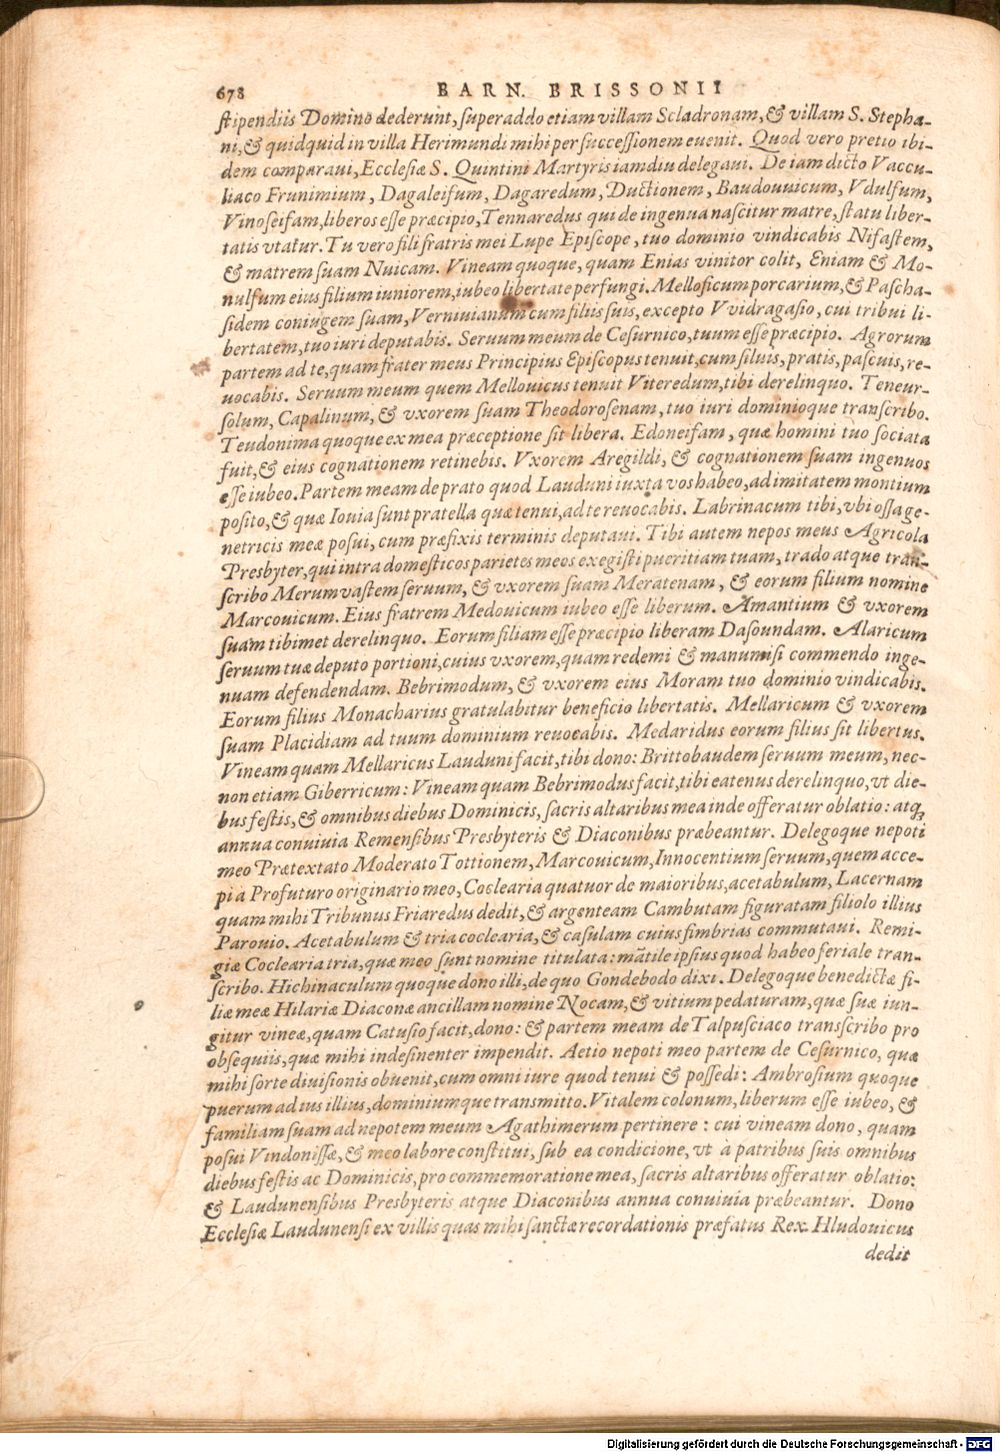 678 BARN. BRISSONII
stipendiis Domino dederunt, superaddo etiam villam Scladronam, & villam S. Stepha-
ni, & quidquid in villa Herimundi mihi per successionem euenit. Quod vero pretio ibi-
dem comparaui, Ecclesiæ S. Quintini Martyris iamdiu delegaui. De iam dicto Vaccu-
liaco Frunimium, Dagaleifum, Dagaredum, Ductionem, Baudouuicum, Vdulfum,
Vinofeifam, liberos esse præcipio, Tennaredus qui de ingenua nascitur matre, statu liber-
tatis vtatur. Tu vero fili fratris mei Lupe Episcope, tuo dominio vindicabis Nifastem,
& matrem suam Nuicam. Vineam quoque, quam Enias vinitor colit, Eniam & Mo-
nulfum eius filium iuniorem, iubeo libertate perfungi. Melloficum porcarium, & Pascha-
sidem coniugem suam, Verniuianum cum filiis suis, excepto Vvidragasio, cui tribui li-
bertatem, tuo iuri deputabis. Seruum meum de Cesurnico, tuum esse præcipio. Agrorum
partem ad te, quam frater meus Principius Episcopus tenuit, cum siluis, pratis, pascuis, re-
uocabis. Seruum meum quem Mellouicus tenuit Viteredum, tibi derelinquo. Teneur-
solum, Capalinum, & vxorem suam Theodorosenam, tuo iuri dominioque transcribo.
Teudonima quoque ex mea præceptione sit libera. Edoneifam, quæ homini tuo sociata
fuit, & eius cognationem retinebis. Vxorem Aregildi, & cognationem suam ingenuos
esse iubeo. Partem meam de prato quod Lauduni iuxta vos habeo, ad imitatem montium
posito, & quæ Iouia sunt pratella quæ tenui, ad te reuocabis. Labrinacum tibi, vbi ossa ge-
netricis meæ posui, cum præfixis terminis deputaui. Tibi autem nepos meus Agricola
Presbyter, qui intra domesticos parietes meos exegisti pueritiam tuam, trado atque tran-
scribo Merumvastem seruum, & vxorem suam Meratenam, & eorum filium nomine
Marcouicum. Eius fratrem Medouicum iubeo esse liberum. Amantium & vxorem
suam tibimet derelinquo. Eorum filiam esse præcipio liberam Dasoundam. Alaricum
seruum tuæ deputo portioni, cuius vxorem, quam redemi & manumisi commendo inge-
nuam defendendam. Bebrimodum, & vxorem eius Moram tuo dominio vindicabis.
Eorum filius Monacharius gratulabitur beneficio libertatis. Mellaricum & vxorem
suam Placidiam ad tuum dominium reuocabis. Medaridus eorum filius sit libertus.
Vineam quam Mellaricus Lauduni facit, tibi dono: Brittobaudem seruum meum, nec-
non etiam Giberricum: Vineam quam Bebrimodus facit, tibi eatenus derelinquo, vt die-
bus festis, & omnibus diebus Dominicis, sacris altaribus mea inde offeratur oblatio: atq;
annua conuiuia Remensibus Presbyteris & Diaconibus præbeantur. Delegoque nepoti
meo Prætextato Moderato Tottionem, Marcouicum, Innocentium seruum, quem acce-
pi à Profuturo originario meo, Coclearia quatuor de maioribus, acetabulum, Lacernam
quam mihi Tribunus Friaredus dedit, & argenteam Cambutam figuratam filiolo illius
Parouio. Acetabulum & tria coclearia, & casulam cuius fimbrias commutaui. Remi-
giæ Coclearia tria, quæ meo sunt nomine titulata: mātile ipsius quod habeo feriale tran-
scribo. Hichinaculum quoque dono illi, de quo Gondebodo dixi. Delegoque benedictæ fi-
liæ meæ Hilariæ Diaconæ ancillam nomine Nocam, & vitium pedaturam, quæ suæ iun-
gitur vineæ, quam Catusio facit, dono: & partem meam de Talpusciaco transcribo pro
obsequiis, quæ mihi indesinenter impendit. Aetio nepoti meo partem de Cesurnico, quæ
mihi sorte diuisionis obuenit, cum omni iure quod tenui & possedi: Ambrosium quoque
puerum ad ius illius, dominiumque transmitto. Vitalem colonum, liberum esse iubeo, &
familiam suam ad nepotem meum Agathimerum pertinere: cui vineam dono, quam
posui Vindonissæ, & meo labore constitui, sub ea condicione, vt à patribus suis omnibus
diebus festis ac Dominicis, pro commemoratione mea, sacris altaribus offeratur oblatio:
& Laudunensibus Presbyteris atque Diaconibus annua conuiuia præbeantur. Dono
Ecclesiæ Laudunensi ex villis quas mihi sanctæ recordationis præfatus Rex Hludouicus
dedit
Digitalisierung gefördert durch die Deutsche Forschungsgemeinschaft - DFG